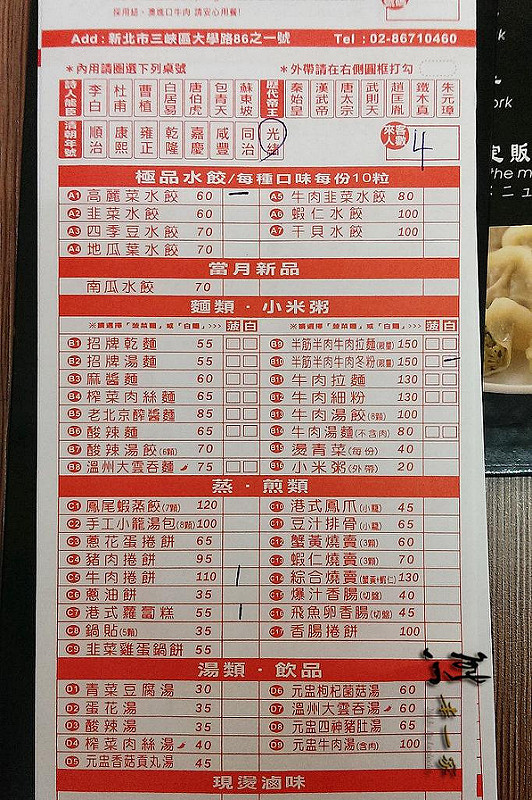 採用紐、澳進口牛肉 請安心用餐!
Add:新北市三峽區大學路86之一號 Tel:02-86710460
*內用請圈選下列桌號 *外帶請在右側圓框打勾
詩人能臣 李白 杜甫 曹植 白居易 唐伯虎 包青天 蘇東坡 歷代帝王 秦始皇 漢武帝 唐太宗 武則天 趙匡胤 鐵木真 朱元璋
清朝年號 順治 康熙 雍正 乾隆 嘉慶 咸豐 同治 光緒 來客人數 4
極品水餃/每種口味每份10粒
A1 高麗菜水餃 60 A5 牛肉韭菜水餃 80
A2 韭菜水餃 60 A6 蝦仁水餃 100
A3 四季豆水餃 70 A7 干貝水餃 100
A4 地瓜葉水餃 70
當月新品
南瓜水餃 70
麵類·小米粥
※請選擇「菠菜麵」或「白麵」>>> 菠 白 ※請選擇「菠菜麵」或「白麵」>>> 菠 白
B1 招牌乾麵 55 B9 半筋半肉牛肉拉麵(限量) 150
B2 招牌湯麵 55 B10 半筋半肉牛肉冬粉(限量) 150
B3 麻醬麵 60 B11 牛肉拉麵 130
B4 榨菜肉絲麵 65 B12 牛肉細粉 130
B5 老北京醡醬麵 85 B13 牛肉湯餃(6顆) 100
B6 酸辣麵 65 B14 牛肉湯麵(不含肉) 80
B7 酸辣湯餃(6顆) 70 B15 燙青菜(每份) 40
B8 溫州大雲吞麵 75 B16 小米粥(外帶) 20
蒸·煎類
C1 鳳尾蝦蒸餃(7顆) 120 C10 港式鳳爪(小籠) 45
C2 手工小籠湯包(8顆) 100 C11 豆汁排骨(小籠) 65
C3 蔥花蛋捲餅 65 C12 蟹黃燒賣(3顆) 60
C4 豬肉捲餅 95 C13 蝦仁燒賣(3顆) 70
C5 牛肉捲餅 110 C14 綜合燒賣(蟹黃+蝦仁) 130
C6 蔥油餅 35 C15 爆汁香腸(切盤) 40
C7 港式蘿蔔糕 55 C16 飛魚卵香腸(切盤) 45
C8 鍋貼(5顆) 35 C17 香腸捲餅 100
C9 韭菜雞蛋鍋餅 55
湯類·飲品
D1 青菜豆腐湯 30 D6 元盅枸杞菌菇湯 60
D2 蛋花湯 35 D7 溫州大雲吞湯 60
D3 酸辣湯 35 D8 元盅四神豬肚湯 65
D4 榨菜肉絲湯 40 D9 元盅牛肉湯(含肉) 100
D5 元盅香菇貢丸湯 45
現燙滷味